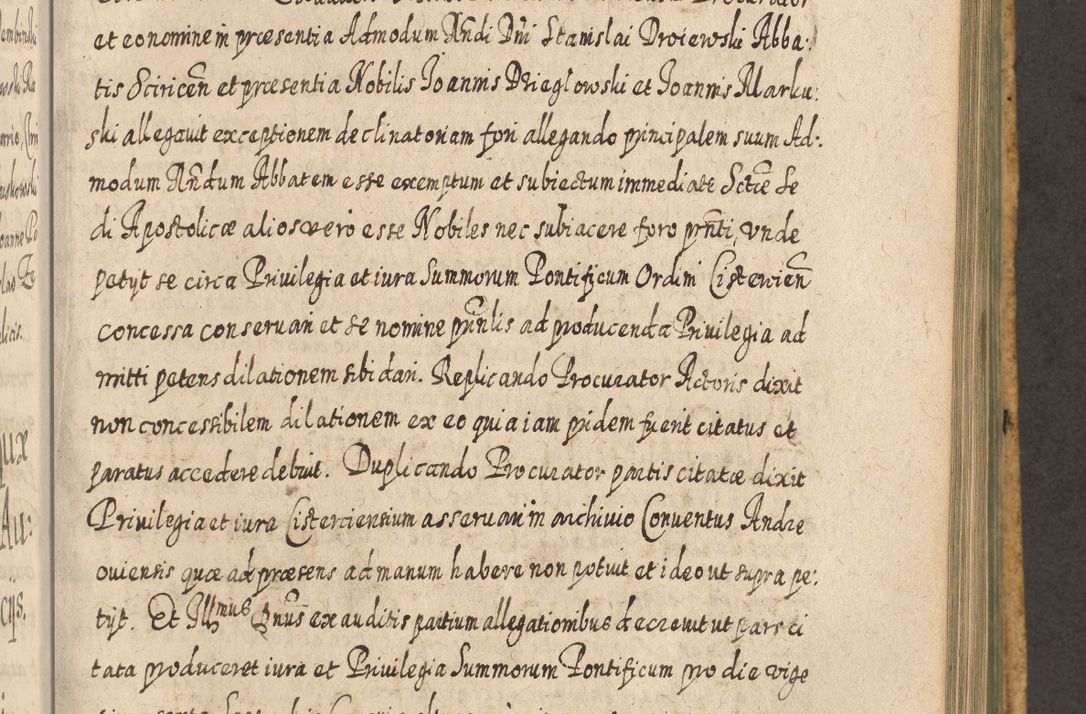 et eo nomine in præsentia Admodum Rn̄di Dn̄i Stanislai Droiewski Abba:
tis Sciricen̄ et præsentia Nobilis Joannis Drieglowski et Joannis Marku:
ski allegavit exceptionem declinatoriam fori allegando principalem suum Ad:
modum Rn̄dum Abbatem esse exemptum et subiectum immediate Sctǣ Se
di Apostolicæ alios vero esse Nobiles nec subiacere foro prn̄ti, Vnde
petijt se circa Privilegia et iura Summorum Pontificum Ordini Cistercien̄
concessa conservari et se nomine prīnlis ad producenda Privilegia ad
mitti petens dilationem sibi dari. Replicando Procurator Actoris dixit
non concessibilem dilationem ex eo quia iam pridem fuerit citatus et
paratus accedere debuit. Duplicando Procurator partis citatæ dixit
Privilegia et iura Cisterciensium asservari in archivio Conventus Andre
oviensis quæ ad præsens ad manum habere non potuit et ideo ut supra pe:
tijt. Et Illmus Dnūs exauditis partium allegationibus decrevit ut pars ci
tata produceret iura et Privilegia Summorum Pontificum pro die vige